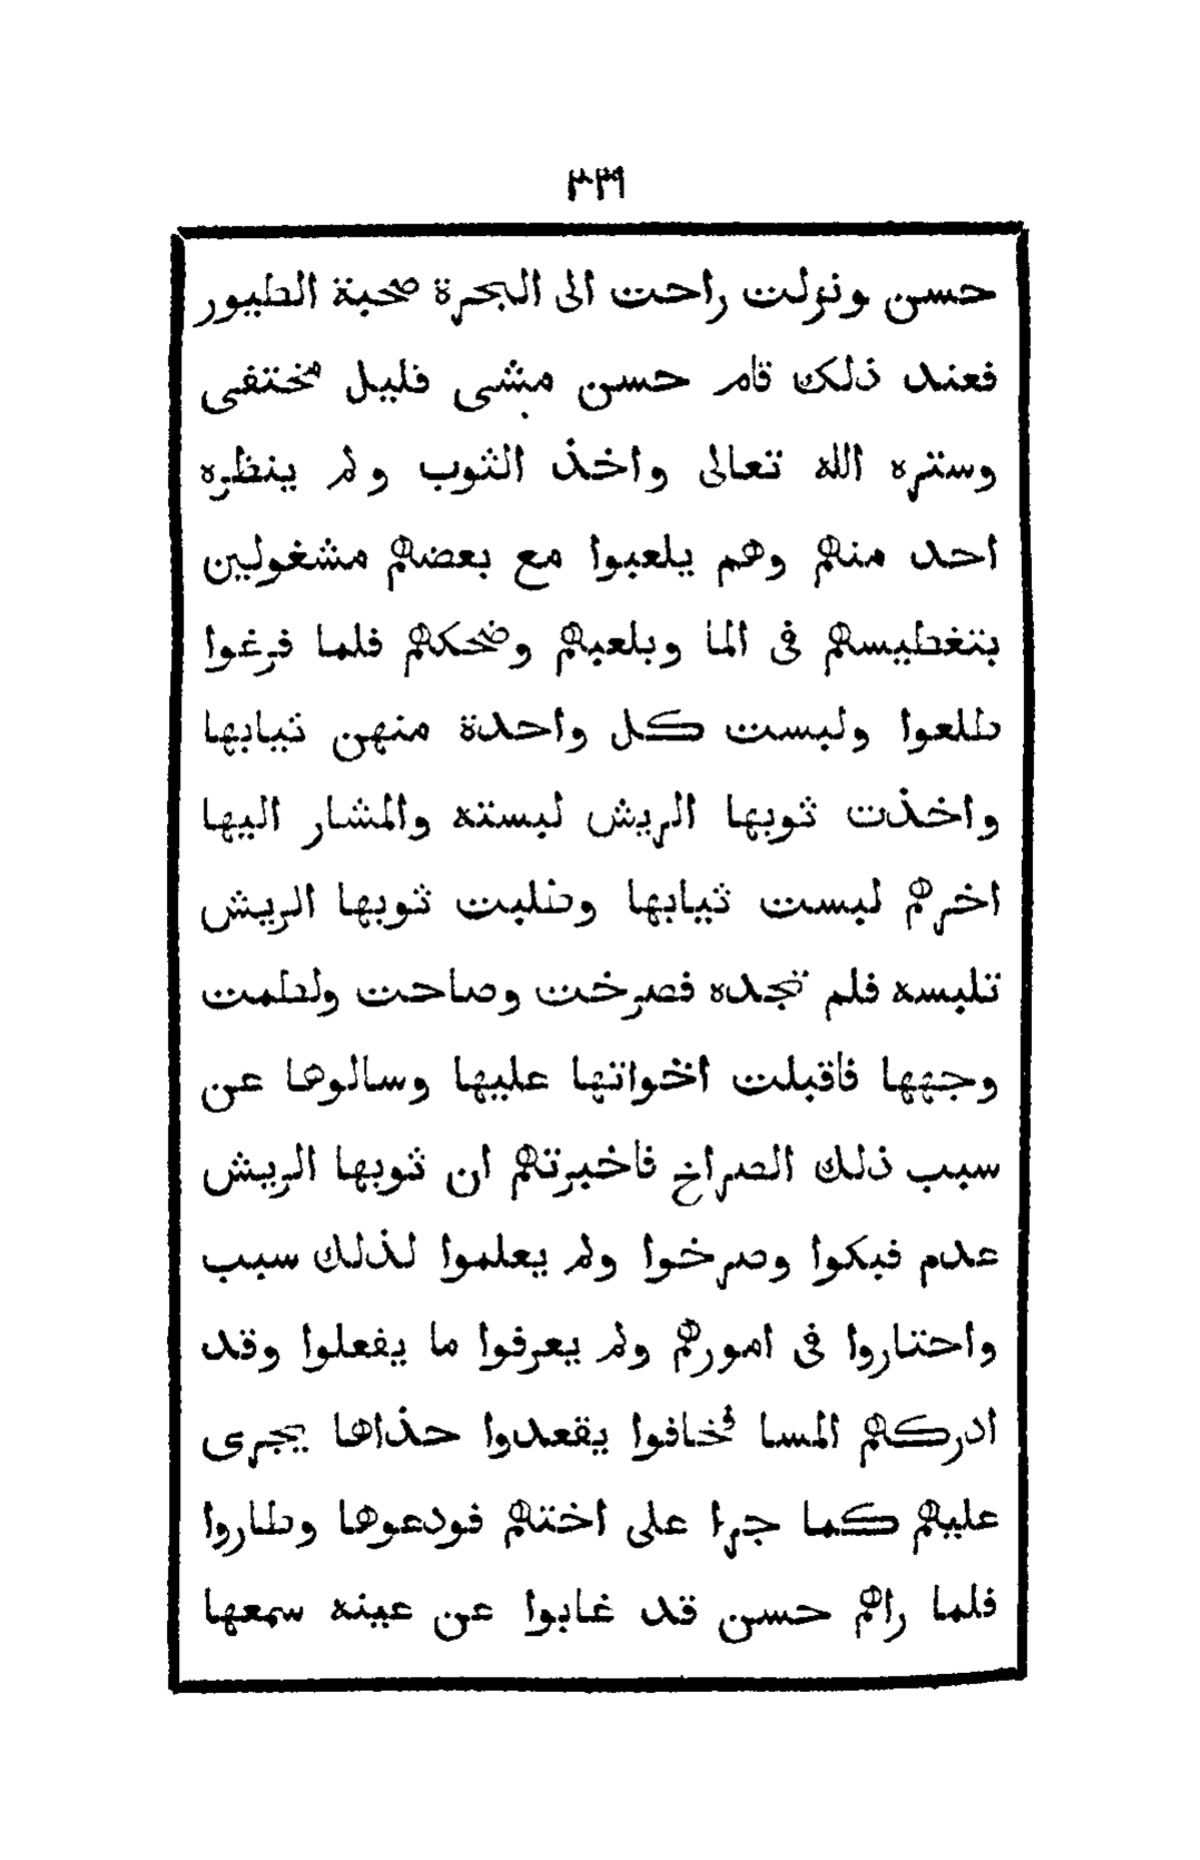 ٣٣٩
حسن ونزلت راحت الى البحرة صحبة الطيور
فعند ذلك قام حسن مشى قليل مختفى
وستره الله تعالى واخذ الثوب ولم ينظره
احد منهم وهم يلعبوا مع بعضهم مشغولين
بتغطيسهم فى الما وبلعبهم وضحكهم فلما فرغوا
طلعوا ولبست كل واحدة منهن تيابها
واخذت ثوبها الريش لبسته والمشار اليها
اخرهم لبست ثيابها وطلبت ثوبها الريش
تلبسه فلم تجده فصرخت وصاحت ولطمت
وجهها فاقبلت اخواتها عليها وسالوها عن
سبب ذلك الصراخ فاخبرتهم ان ثوبها الريش
عدم فبكوا وصرخوا ولم يعلموا لذلك سبب
واحتاروا فى امورهم ولم يعرفوا ما يفعلوا وقد
ادركهم المسا فخافوا يقعدوا حذاها يجرى
عليهم كما جرا على اختهم فودعوها وطاروا
فلما راهم حسن قد غابوا عن عينه سمعها